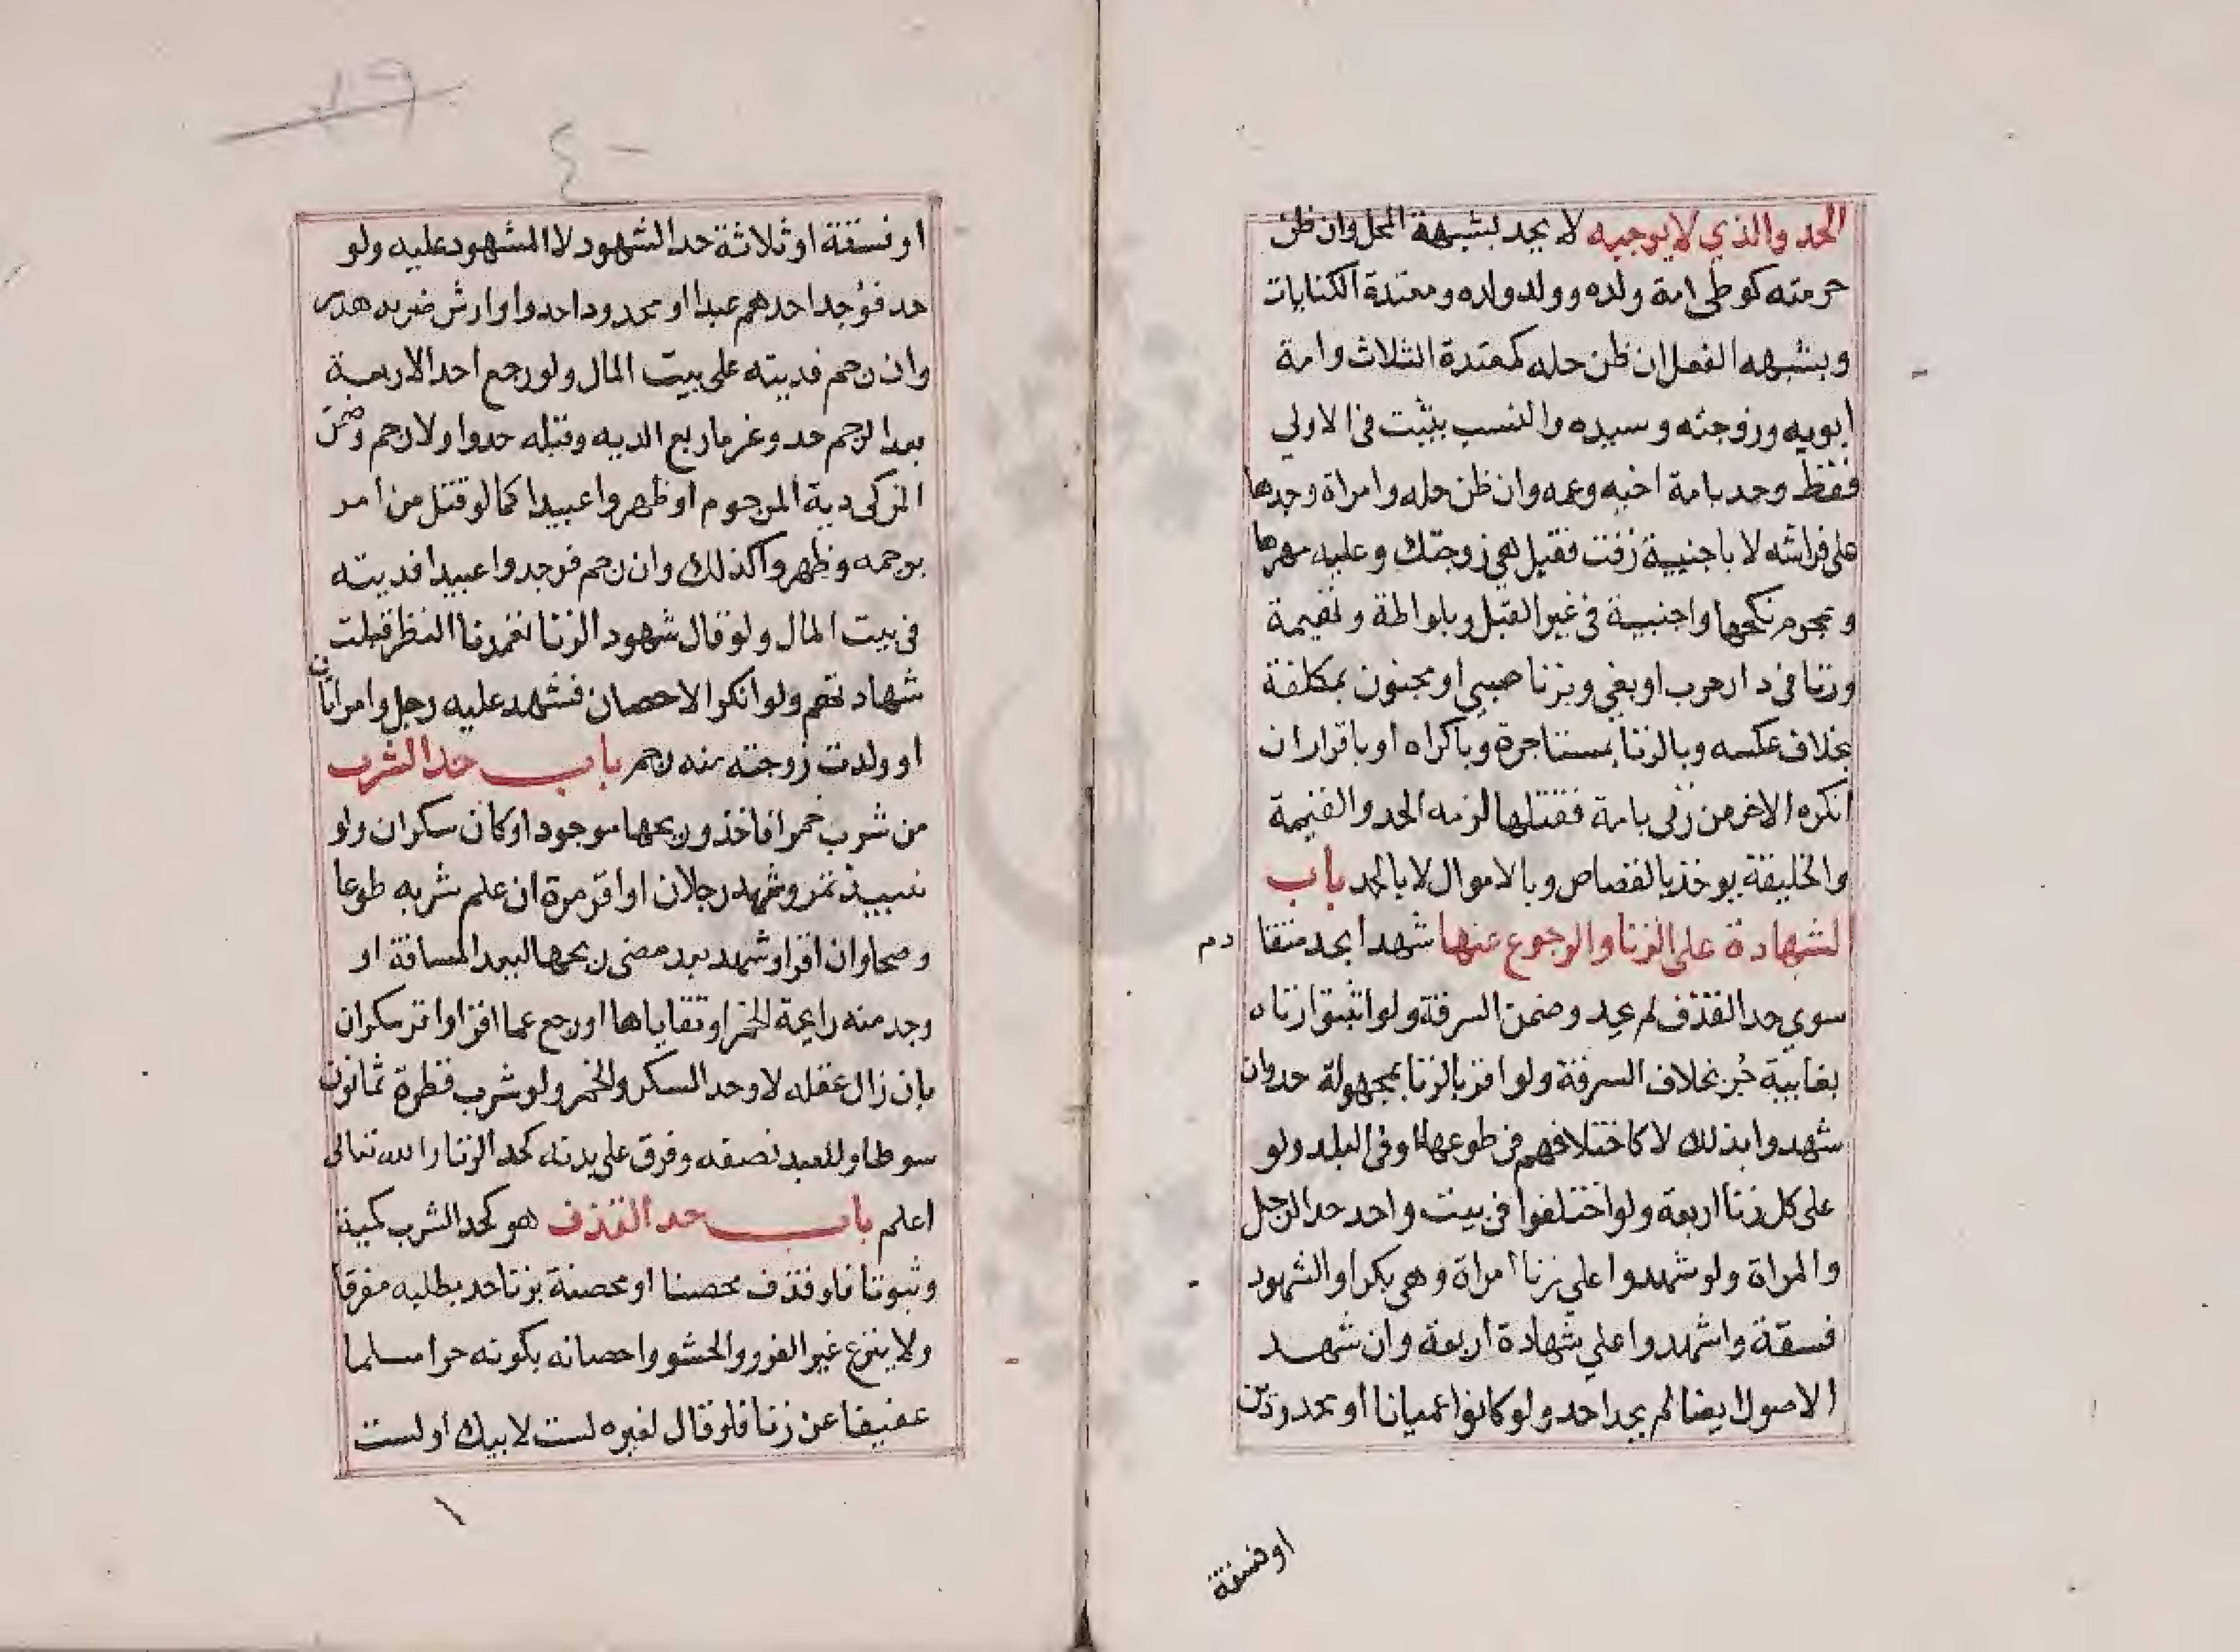 الحد والذي لا يوجبه لا يحد بشبهة المحل وان ظن
حرمته كوطي امة ولده وولد ولده ومعتدة الكنايات
وبشبهه الفعل ان ظن حله كمعتدة الثلاث وامة
ابويه وزوجته وسيده والنسب يثبت في الاولي
فقط وحد بامة اخيه وعمه وان ظن حله وامراة وجدها
علي فراشه لا باجنبية زفت فقيل هي زوجتك وعليه مهرها
وبمحرم نكحها واجنبية في غير القبل وبلواطة وبهيمة
وزنا في دار حرب او بغي وبزنا صبي او مجنون بمكلفة
بخلاف عكسه وبالزنا بمستاجرة وباكراه او باقرار ان
انكره الاخر من زني بامة فقتلها لزمه الحد والقيمة
والخليفة يوخذ بالقصاص وبالاموال لا بالحد باب
الشهادة علي الزنا والرجوع عنها شهدا بحد متقا دم
سوي حد القذف لم يحد وضمن السرقة ولو اثبتوا زناه
بغايبة حُد بخلاف السرقة ولو اقر بالزنا بمجهولة حد وان
شهدوا بذلك لا كاختلافهم في طوعها او في البلد ولو
علي كل زنا اربعة ولو اختلفوا في بيت واحد حد الرجل
والمراة ولو شهدوا علي زنا امراة وهي بكر او الشهود
فسقة واشهدوا علي شهادة اربعة وان شهد
الاصول ايضا لم يحد احد ولو كانوا عميانا او محدودين
او فسقة
٤٠
او فسقة او ثلاثة حد الشهود لا المشهود عليه ولو
حد فوُجد احدهم عبدا او محدودا حدوا وارش ضربه هدر
وان رجم فديته علي بيت المال ولو رجع احد الاربعة
بعد الرجم حد وغرم ربع الديه وقبله حدوا ولا رجم وضمن
المزكي دية المرجوم ان ظهروا عبيدا كما لو قتل من امر
برجمه وظهروا كذلك وان رجم فوجدوا عبيدا فديته
في بيت المال ولو قال شهود الزنا تعمدنا النظر قبلت
شهادتهم ولو انكر الاحصان فشهد عليه رجل وامراتان
او ولدت زوجته منه رجم باب حد الشرب
من شرب خمرا فاخذ وريحها موجود او كان سكران ولو
نبيذ تمر وشهد رجلان او اقر مرة ان علم شربه طوعا
وصحا وان اقر او شهد بعد مضي ريحها لا لبعد المسافة او
وجد منه رايحة الخمر او تقاياها او رجع عما اقر او اقر سكران
بان زال عقله لا وحد السكر والخمر ولو شرب قطرة ثمانون
سوطا وللعبد نصفه وفرق علي بدنه كحد الزنا والله تعالي
اعلم باب حد القذف هو كحد الشرب كمية
وثبوتا فلو قذف محصنا او محصنة بزنا حد بطلبه مفرقا
ولا ينزع غير الفرو والحشو واحصانه بكونه حرا مسلما
عفيفا عن زنا فلو قال لغيره لست لابيك او لست